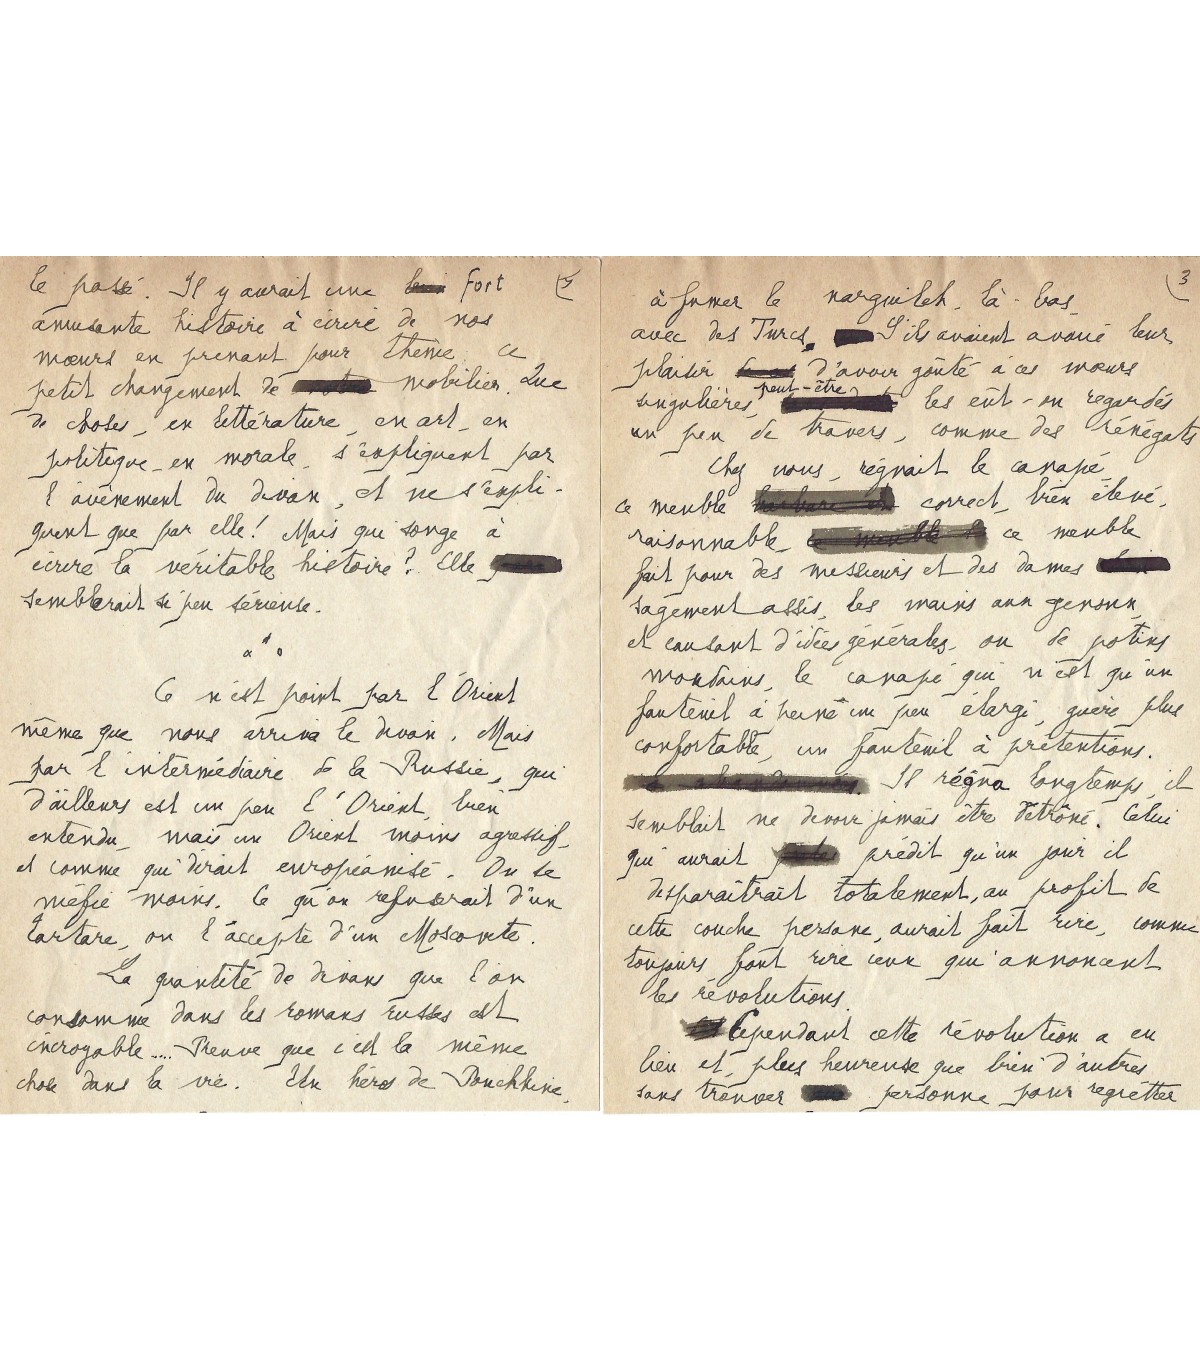 le passé. Il y aurait une fort
amusante histoire à écrire de nos
mœurs en prenant pour thème ce
petit changement de mobilier. Que
de choses, en littérature, en art, en
politique, en morale, s'expliquent par
l'avènement du divan, et ne s'expli-
quent que par elle! Mais qui songe à
écrire la véritable histoire? Elle
semblerait si peu sérieuse.
Ce n'est point par l'Orient
même que nous arriva le divan. Mais
par l'intermédiaire de la Russie, qui
d'ailleurs est un peu l'Orient, bien
entendu, mais un Orient moins agressif,
et comme qui dirait européanisé. On se
méfie moins. Ce qu'on refuserait d'un
tartare, on l'accepte d'un Moscovite.
La quantité de divans que l'on
consomme dans les romans russes est
incroyable.... Preuve que c'est la même
chose dans la vie. Un héros de Pouchkine,
3
à fumer le narguileh, là-bas,
avec des Turcs. S'ils avaient avoué leur
plaisir d'avoir goûté à ces mœurs
singulières, peut-être les eût-on regardés
un peu de travers, comme des rénégats
Chez nous, régnait le canapé,
ce meuble correct, bien élevé,
raisonnable, ce meuble
fait pour des messieurs et des dames
sagement assis, les mains aux genoux,
et causant d'idées générales, ou de potins
mondains, le canapé qui n'est qu'un
fauteuil à peine un peu élargi, guère plus
confortable, un fauteuil à prétentions.
Il régna longtemps, il
semblait ne devoir jamais être détrôné. Celui
qui aurait prédit qu'un jour il
disparaîtrait totalement, au profit de
cette couche persane, aurait fait rire, comme
toujours font rire ceux qui annoncent
les révolutions.
Cependant cette révolution a eu
lieu et, plus heureuse que bien d'autres
sans trouver personne pour regretter